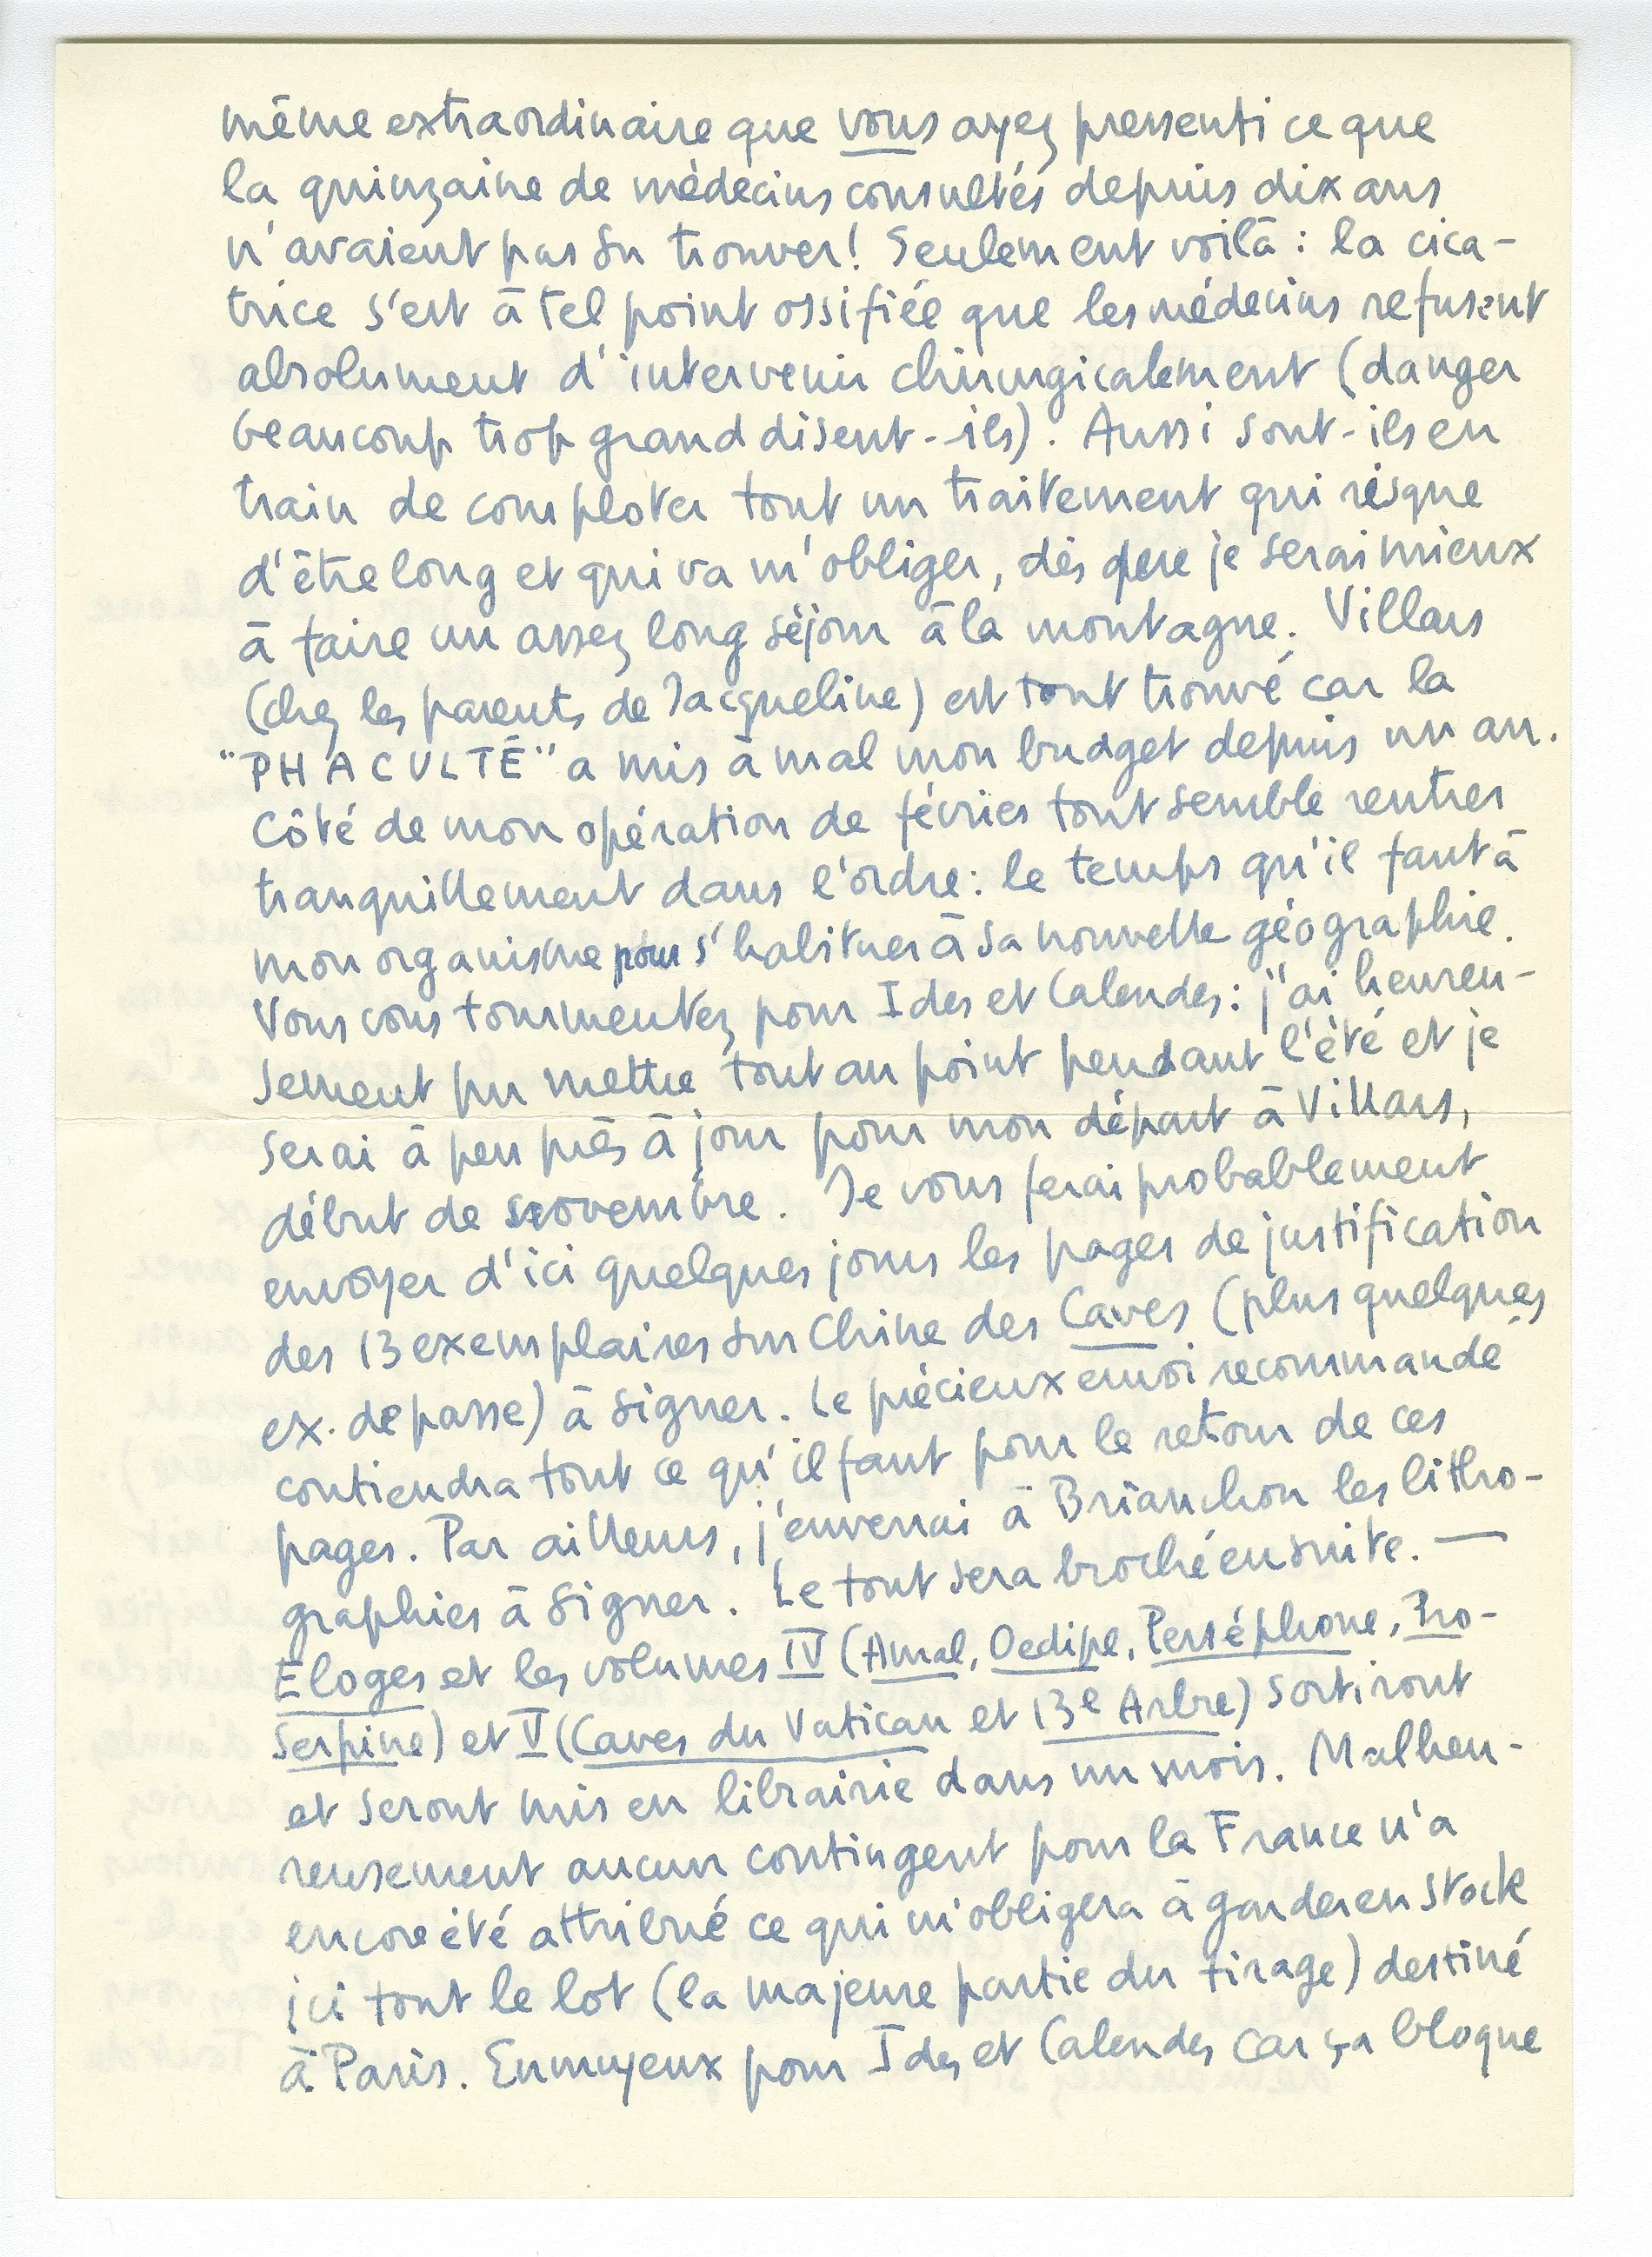 même extraordinaire que vous ayez pressenti ce que
la quinzaine de médecins consultés depuis dix ans
n'avaient pas su trouver! Seulement voilà : la cica-
trice s'est à tel point ossifiée que les médecins refusent
absolument d'intervenir chirurgicalement (danger
beaucoup trop grand disent-ils). Aussi sont-ils en
train de comploter tout un traitement qui risque
d'être long et qui va m'obliger, dès que je serai mieux
à faire un assez long séjour à la montagne. Villars
(chez les parents de Jacqueline) est tout trouvé car la
"PHACULTÉ" a mis à mal mon budget depuis un an.
Côté de mon opération de février tout semble rentrer
tranquillement dans l'ordre : le temps qu'il faut à
mon organisme pour s'habituer à sa nouvelle géographie.
Vous vous tourmentez pour Ides et Calendes : j'ai heureu-
sement pu mettre tout au point pendant l'été et je
serai à peu près à jour pour mon départ à Villars,
début de novembre. Je vous ferai probablement
envoyer d'ici quelques jours les pages de justification
des 13 exemplaires sur Chine des Caves (plus quelques
ex. de passe) à signer. Le précieux envoi recommandé
contiendra tout ce qu'il faut pour le retour de ces
pages. Par ailleurs, j'enverrai à Brianchon les litho-
graphies à signer. Le tout sera broché ensuite. —
Eloges et les volumes IV (Amal, Oedipe, Perséphone, Pro-
serpine) et V (Caves du Vatican et 13e Arbre) sortiront
et seront mis en librairie dans un mois. Malheu-
reusement aucun contingent pour la France n'a
encore été attribué ce qui m'obligera à garder en stock
ici tout le lot (la majeure partie du tirage) destiné
à Paris. Ennuyeux pour Ides et Calendes car ça bloque